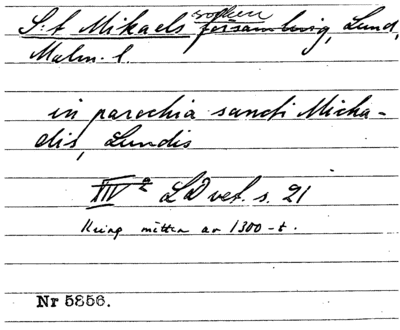 S:t Mikaels socken församling, Lund,
Malm. l.
in parochia sancti Micha-
elis, Lundis
XIV a LD vet. s. 21
Kring mitten av 1300-t.
Nr 5856.